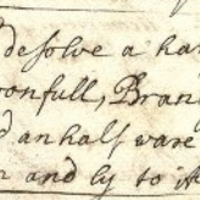 desolve a ha
onfull, Bran
d an half ware
n and ly to it